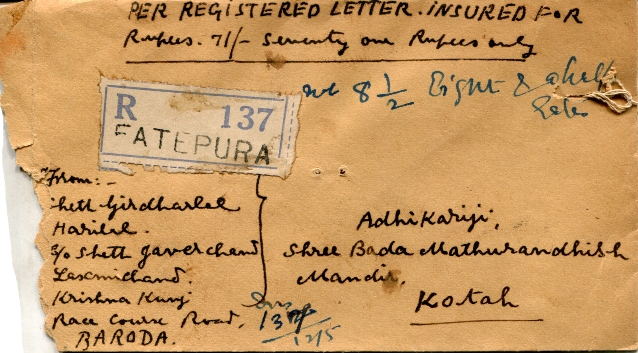 PER REGISTERED LETTER. INSURED FOR
Rupees. 71/- Seventy one Rupees only
wt 8 1/2 Eight & a half
Tolas
R 137
FATEPURA
From:-
Shett Girdharlal
Harilal.
c/o Shett Javerchand
Laxmichand.
Krishna Kunj
Race Course Road,
BARODA.
Adhikariji,
Shree Bada Mathurandhish
Mandir,
Kotah
Ins
12/5